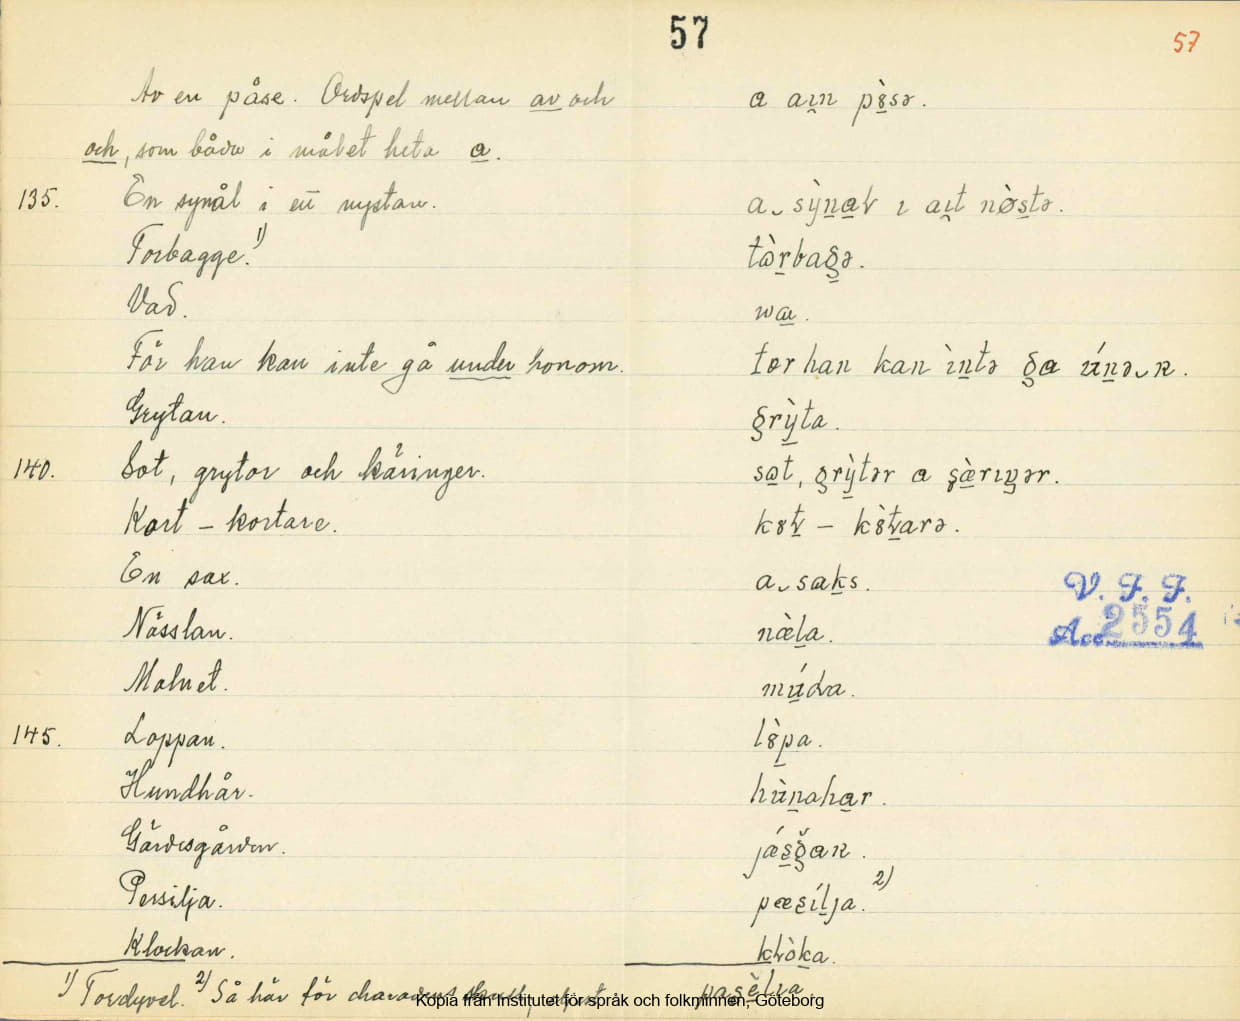 57
57
Av en påse. Ordspel mellan av och a ai̯n pò̱sə.
och, som båda i målet heta a.
135. En synål i ett nystan. a sỳṉaɽ ı ai̯t nø̀s̱tə.
Torbagge.¹⁾ tòṟbag̱ə.
Vad. wa.
För han kan inte gå under honom. før han kan ìṉtə ga úṉə n.
Grytan. grỳta.
140. Sot, grytor och käringer. sot, grỳtər a çæ̀rıŋər.
Kort – kortare. kot – kòtarə.
En sax. a saḵs.
Nässlan. næ̀ḻa.
Molnet. múɽna.
145. Loppan. lòp̱a.
Hundhår. hùṉahar.
Gärdesgården. jǽs̱gan.
Persilja. pæsíḻja.²⁾
Klockan. kɽòḵa.
¹⁾ Tordyvel. ²⁾ Så här för charadens
V. F. F.
Acc. 2554
Kopia från Institutet för språk och folkminnen, Göteborg